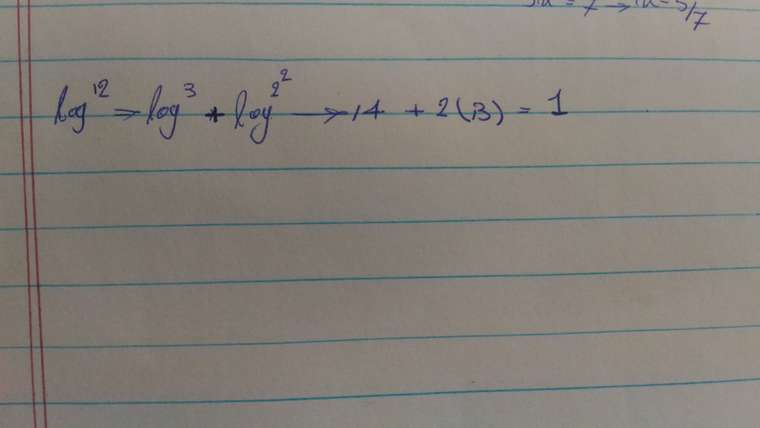 → 5/7
log^12 => log^3 * log^2^2 → 14 + 2(13) = 1